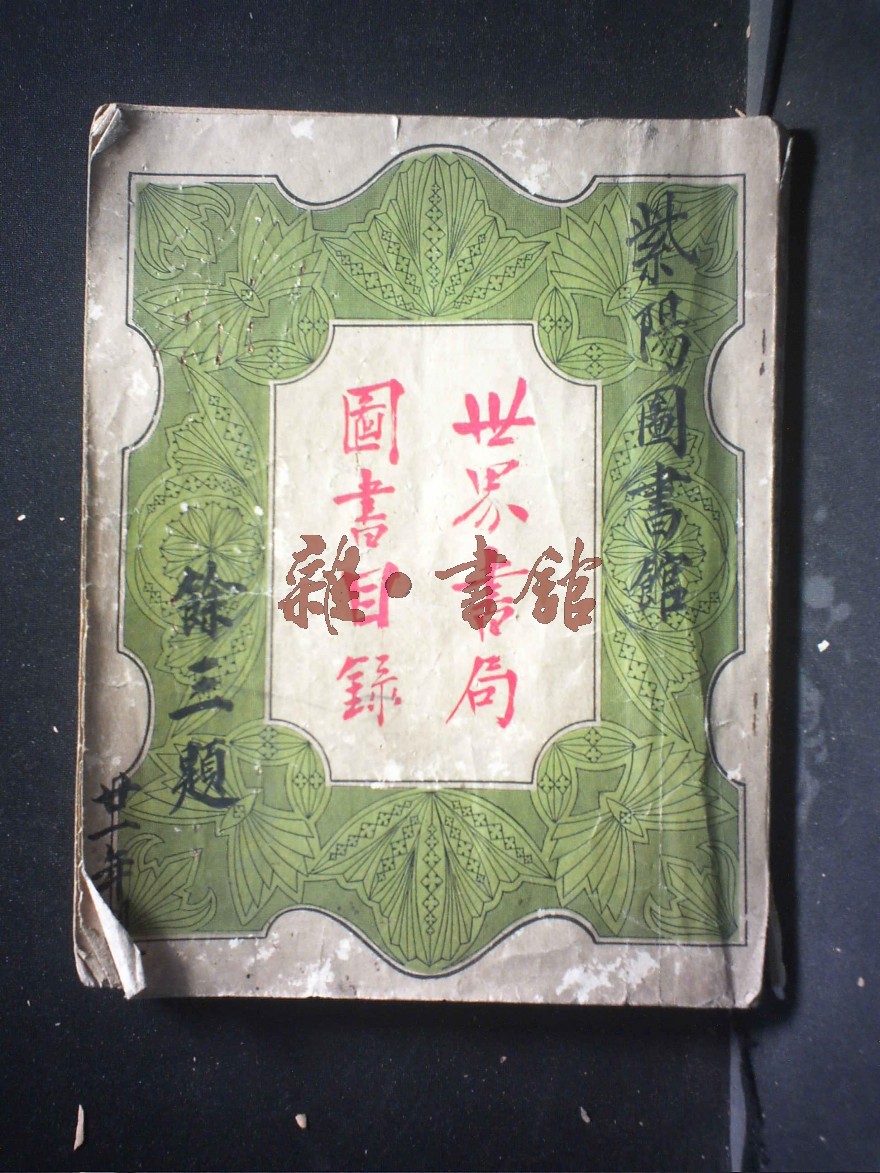 紫陽圖書館
世界書局
圖書目錄
餘三題
廿一年
雜·書館